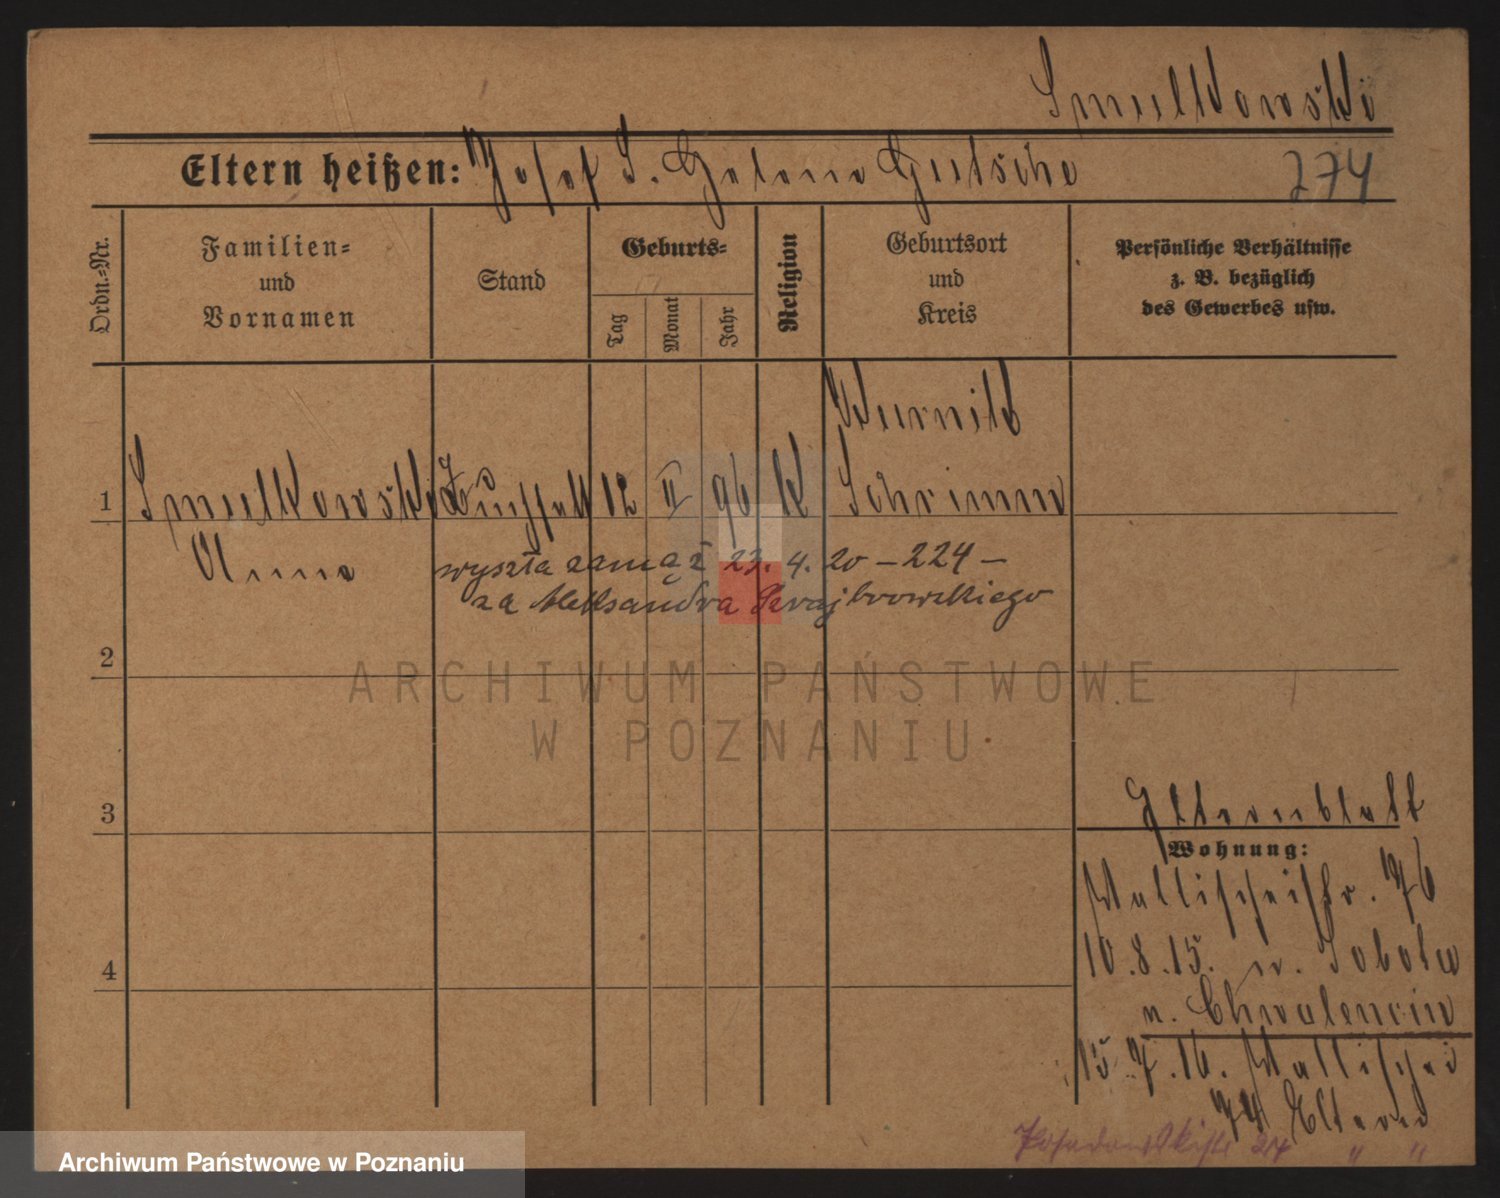 Smulkowski
Eltern heißen: Josef S. Helene Gutsche
274
Ordn.-Nr.
Familien-
und
Vornamen
Stand
Geburts-
Tag
Monat
Jahr
Religion
Geburtsort
und
Kreis
Persönliche Verhältnisse
z. B. bezüglich
des Gewerbes usw.
Kurnik
1 Smulkowski 12 II 96 K Schrimm
Anna
wyszła zamąż 23. 4. 20 – 224 –
za Aleksandra
2
3
4
Elternblatt
Wohnung:
Wallischeistr. 76
10.8.15. n. Sobota
n. Chwalencin
15.7.16. Wallischei
74 Eltern
24 " "
ARCHIWUM PAŃSTWOWE
W POZNANIU
Archiwum Państwowe w Poznaniu